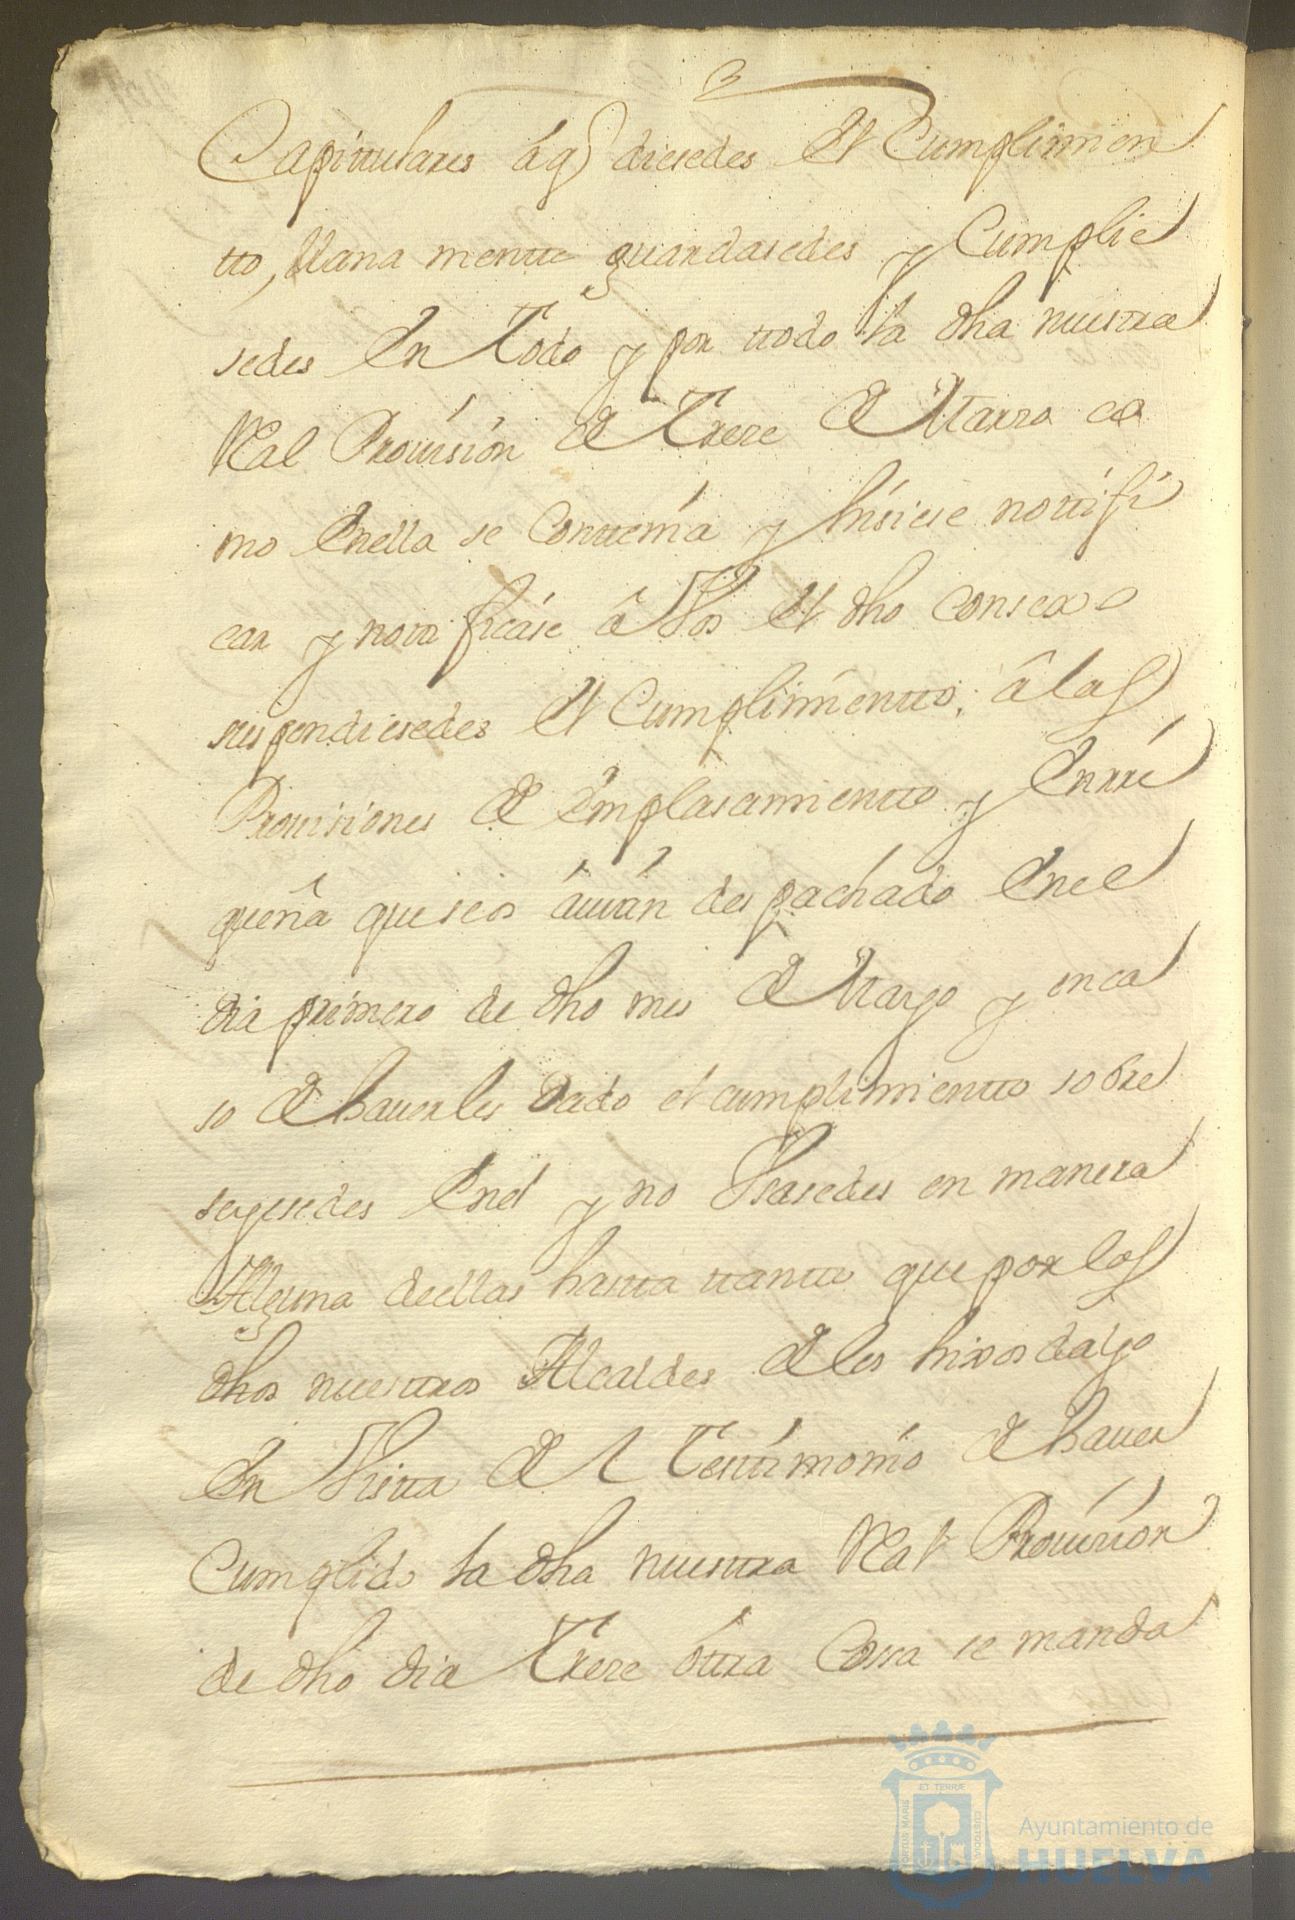 Capittulares á q diesedes El Cumplimien
tto, llana mente guardasedes y Cumplie
sedes En Todo y por ttodo la dha nuestra
Real Provision de Treze de Marzo co
mo Enella se Conttenía y hisiese nottifi
car y notificáse â Vos El dho consexo
suspendiesedes El Cumplimientto, â las
Provisiones de Emplasamientto y
que se os avían despachado Enel
dia primero de dho mes de Marzo y en ca
so de haverles dado el cumplimientto sobre
seyesedes Enel y no Usasedes en manera
Alguna deellas hasta ttantto que por los
dhos nuestros Alcaldes de los hixosdalgo
En Vistta del Testtimonio de haver
Cumplido la dha nuestra Real Provision
de dho dia Treze ôttra Cosa se manda
ET TERRÆ
PORTUS MARIS
CUSTODIA
Ayuntamiento de
HUELVA